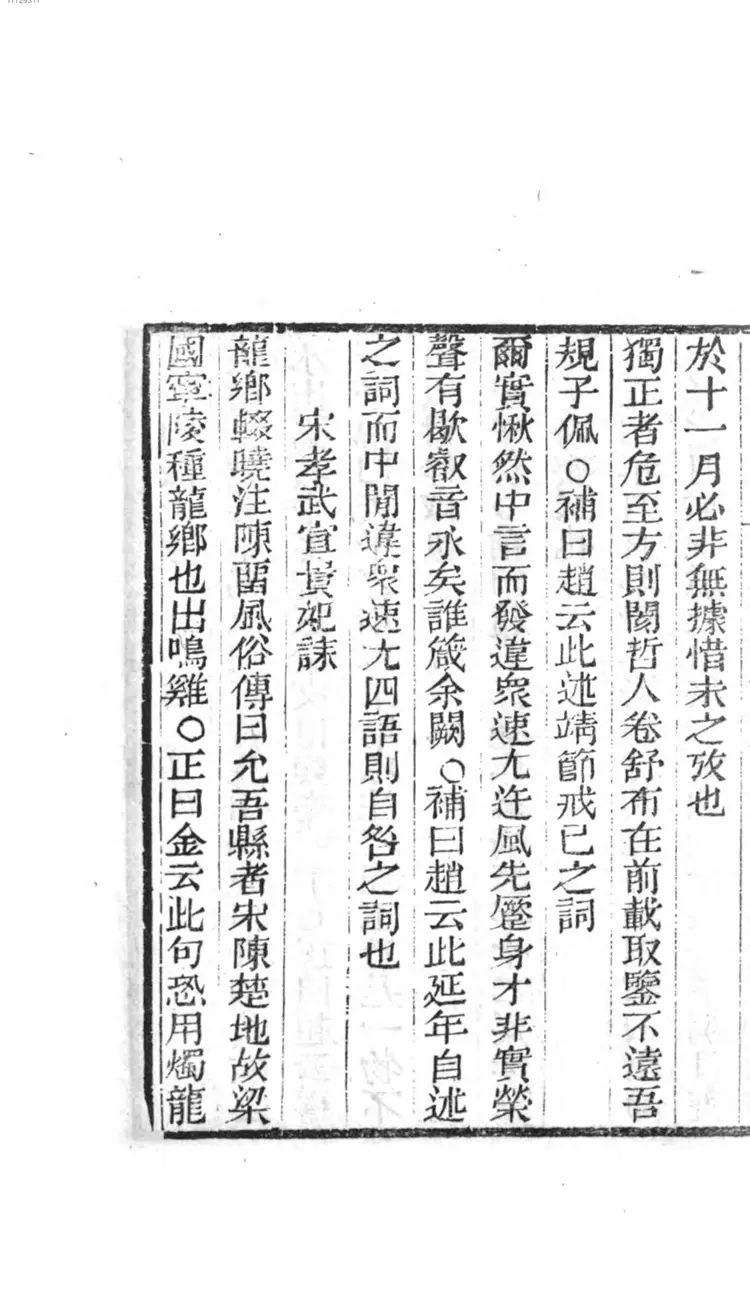 於十一月必非無據惜未之攷也
獨正者危至方則閡哲人卷舒布在前載取鑒不遠吾
規子佩○補曰趙云此述靖節戒己之詞
爾實愀然中言而發違衆速尤迕風先蹙身才非實榮
聲有歇叡音永矣誰箴余闕○補曰趙云此延年自述
之詞而中閒違衆速尤四語則自咎之詞也
宋孝武宣貴妃誄
龍鄉輟曉注陳留風俗傳曰允吾縣者宋陳楚地故梁
國寧陵種龍鄉也出鳴雞○正曰金云此句恐用燭龍